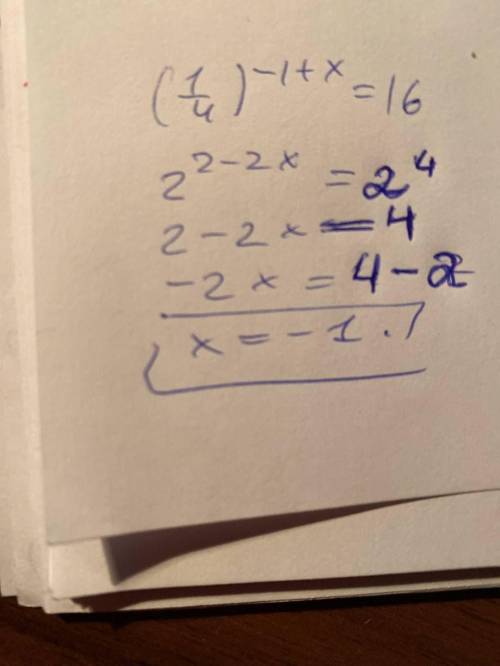 (1/4)^-1+x = 16
2^2-2x = 2^4
2 - 2x = 4
-2x = 4 - 2
x = -1.